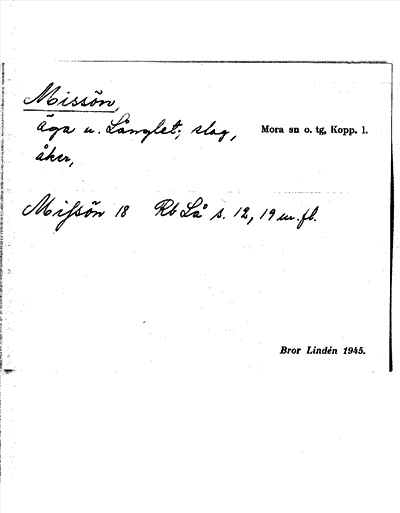 Missön,
äga u. Långlet; slog, Mora sn o. tg, Kopp. l.
åker,
Missön 18 Rb Lå s. 12, 19 m. fl.
Bror Lindén 1945.